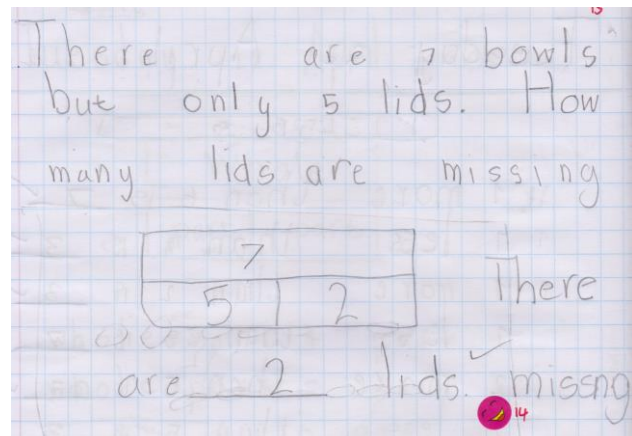 13
There are 7 bowls
but only 5 lids. How
many lids are missing
7
5 2
There
are 2 lids. missng
14